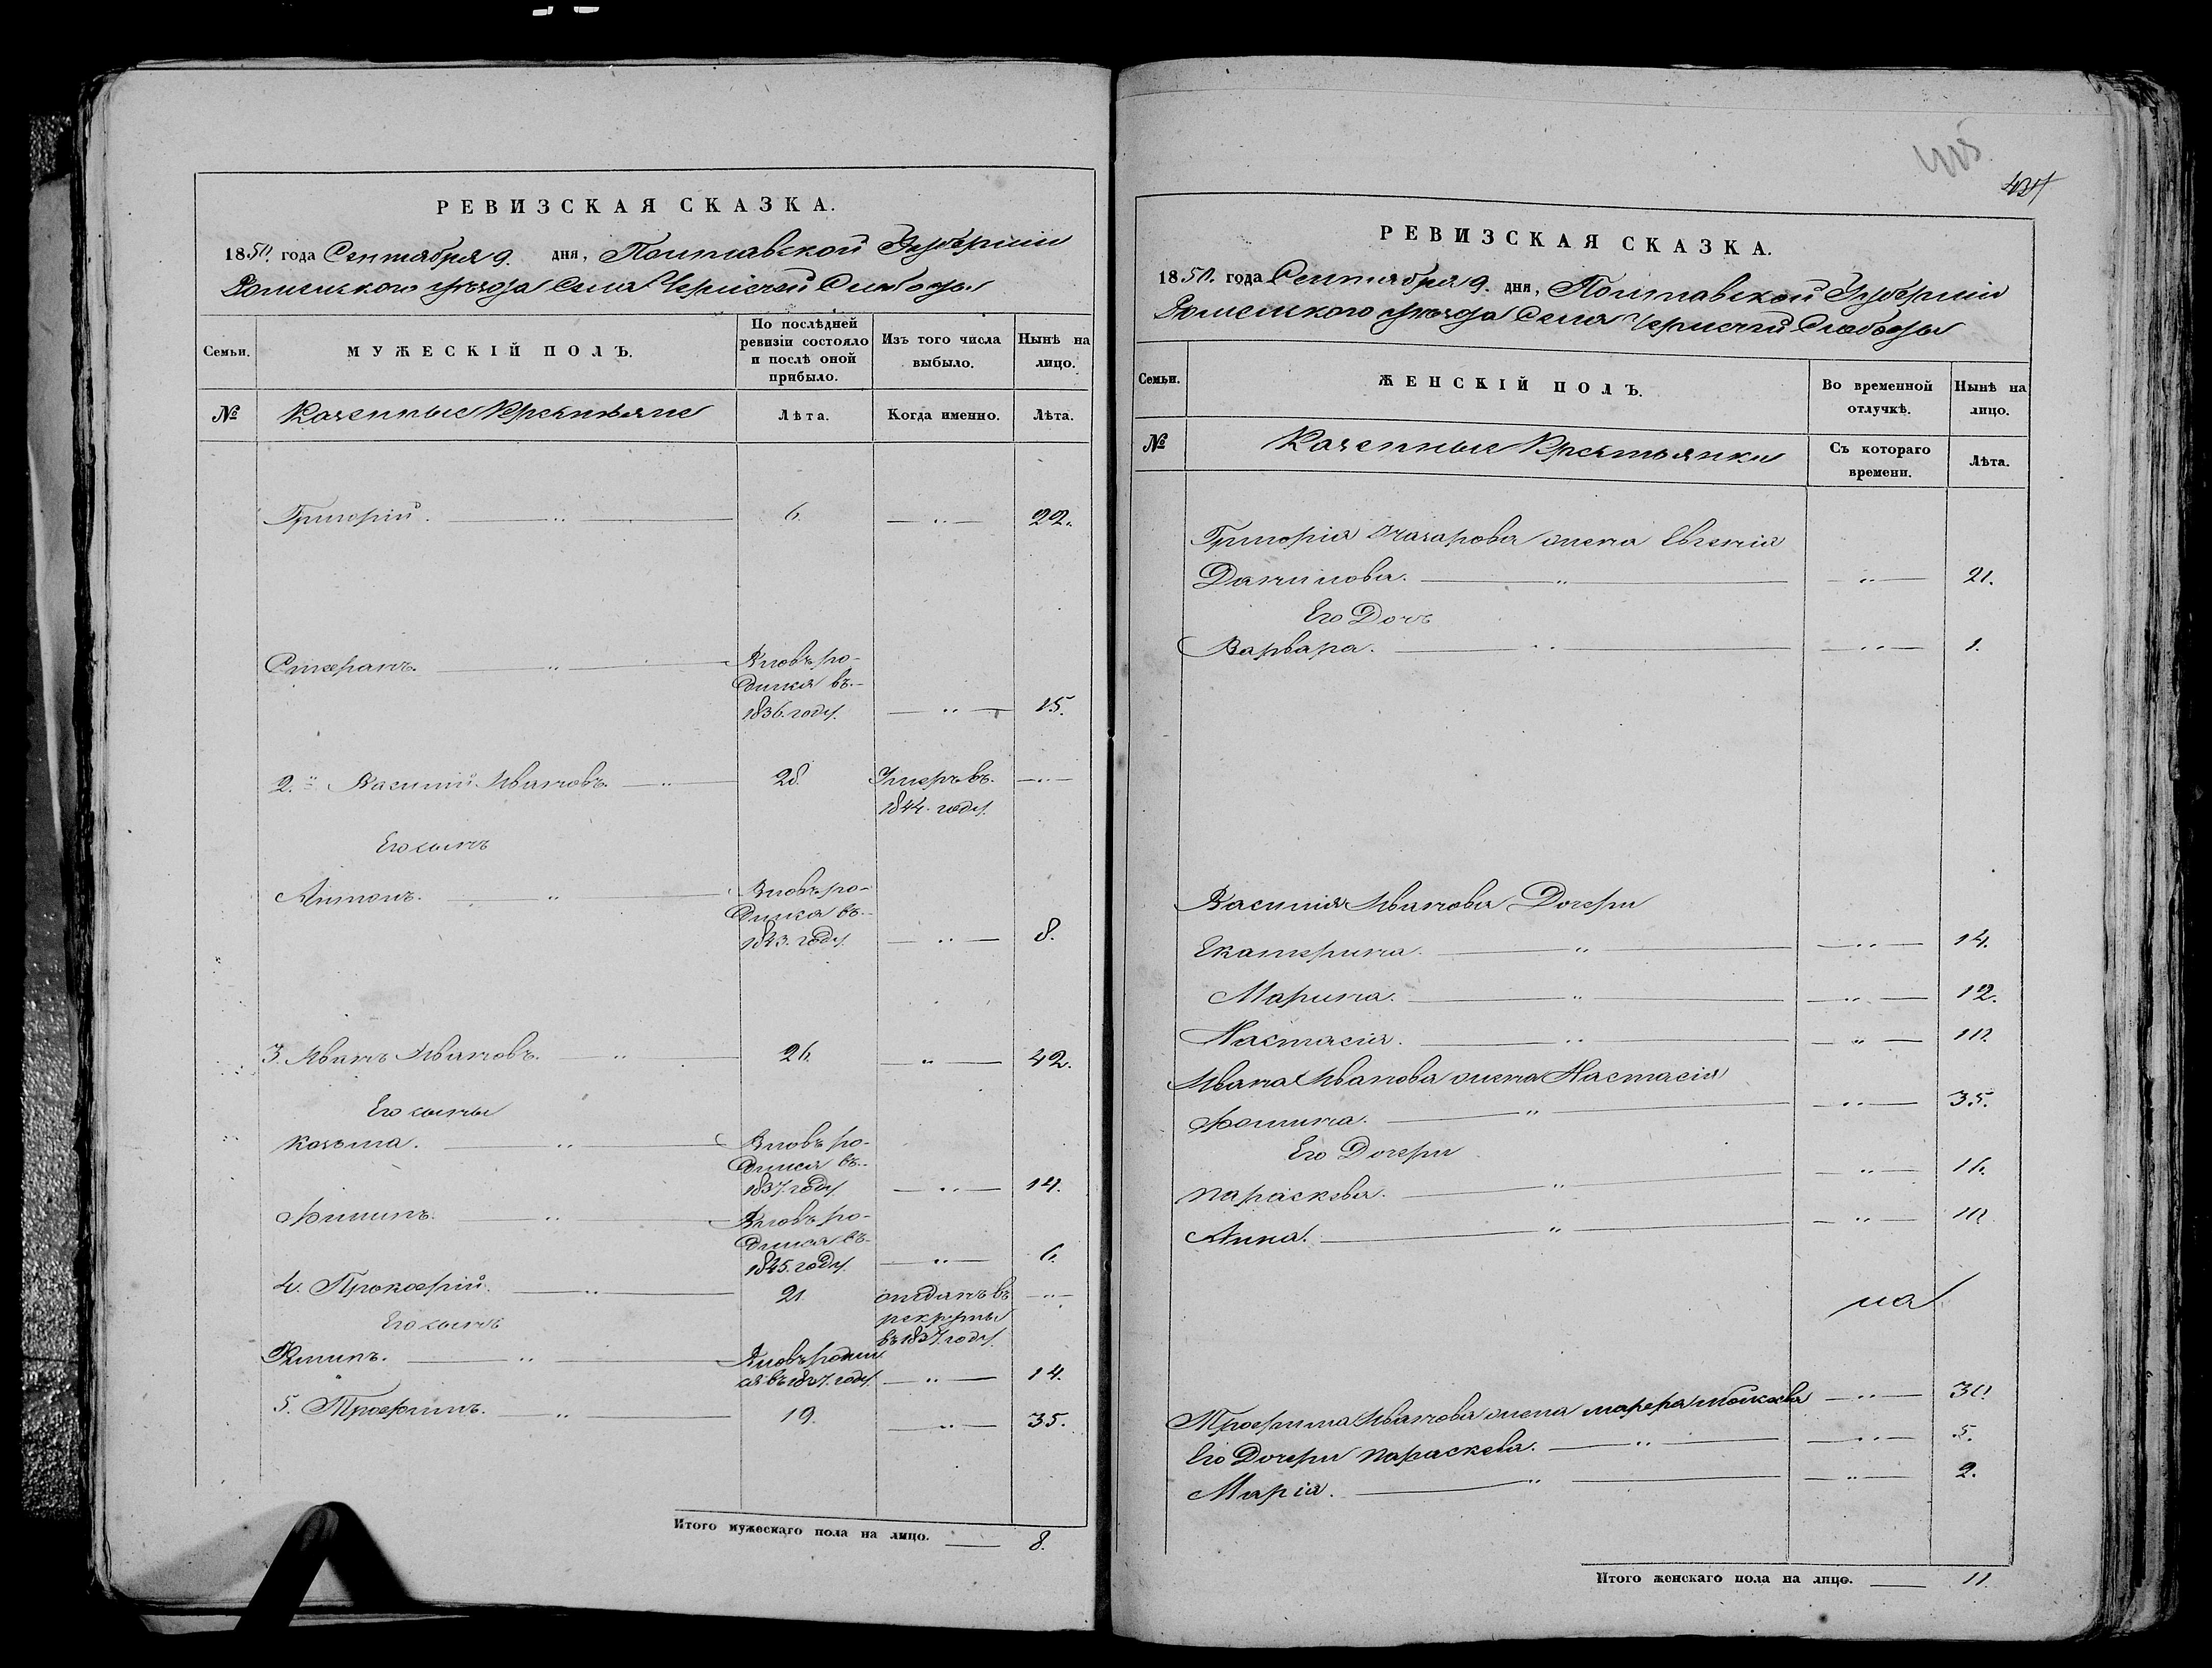 РЕВИЗСКАЯ СКАЗКА.
1850. года Сентября 9. дня, Полтавской Губернiи
Роменского уезда Села Чернечей Слободы
Семьи.
МУЖЕСКIЙ ПОЛЪ.
По послѣдней ревизiи состояло и послѣ оной прибыло.
Изъ того числа выбыло.
Нынѣ на лицо.
№
Казенные Крестьяне
Лѣта.
Когда именно.
Лѣта.
Григорiй. — „ — 6. — „ — 22.
Стефанъ. — „ — Вновь ро-
дился въ
1836. году. — „ — 15.
2. Василiй Ивановъ. — „ — 28 Умеръ въ — „ —
1844. году.
Его сынъ
Антонъ. — „ — Вновь ро-
дился въ
1843. году. — „ — 8.
3. Иванъ Ивановъ. — „ — 26. — „ — 42.
Его сыны
Козьма. — „ — Вновь ро-
дился въ
1837. году — „ — 14.
— „ — Вновь ро-
дился въ
1845. году. — „ — 6.
4. Прокофiй. — „ — 21 отданъ въ — „ —
рекруты
въ 1837. году.
Его сынъ
Филипъ. — „ — Вновь родил
ся въ 1837. году. — „ — 14.
5. Трофимъ. — „ — 19. — „ — 35.
Итого мужескаго пола на лицо. — 8.
437
РЕВИЗСКАЯ СКАЗКА.
1850. года Сентября 9. дня, Полтавской Губернiи
Роменского уезда Села Чернечей Слободы
Семьи.
ЖЕНСКIЙ ПОЛЪ.
Во временной отлучкѣ.
Нынѣ на лицо.
№
Казенные Крестьянки
Съ котораго времени.
Лѣта.
Григорiя Назарова жена Евгенiя
Данилова. — „ — — „ — 21.
Его Дочь
Варвара. — „ — — „ — 1.
Василiя Иванова Дочери
Екатерина. — „ — — „ — 14.
Марина. — „ — — „ — 12.
Настасiя. — „ — — „ — 10.
Ивана Иванова жена Настасiя
Фомина. — „ — — „ — 35.
Его Дочери
Параскева. — „ — — „ — 16.
Анна. — „ — — „ — 10.
Трофима Иванова жена — „ — 30.
Его Дочери Параскева. — „ — — „ — 5.
Марiя. — „ — — „ — 2.
Итого женскаго пола на лицо. — 11.